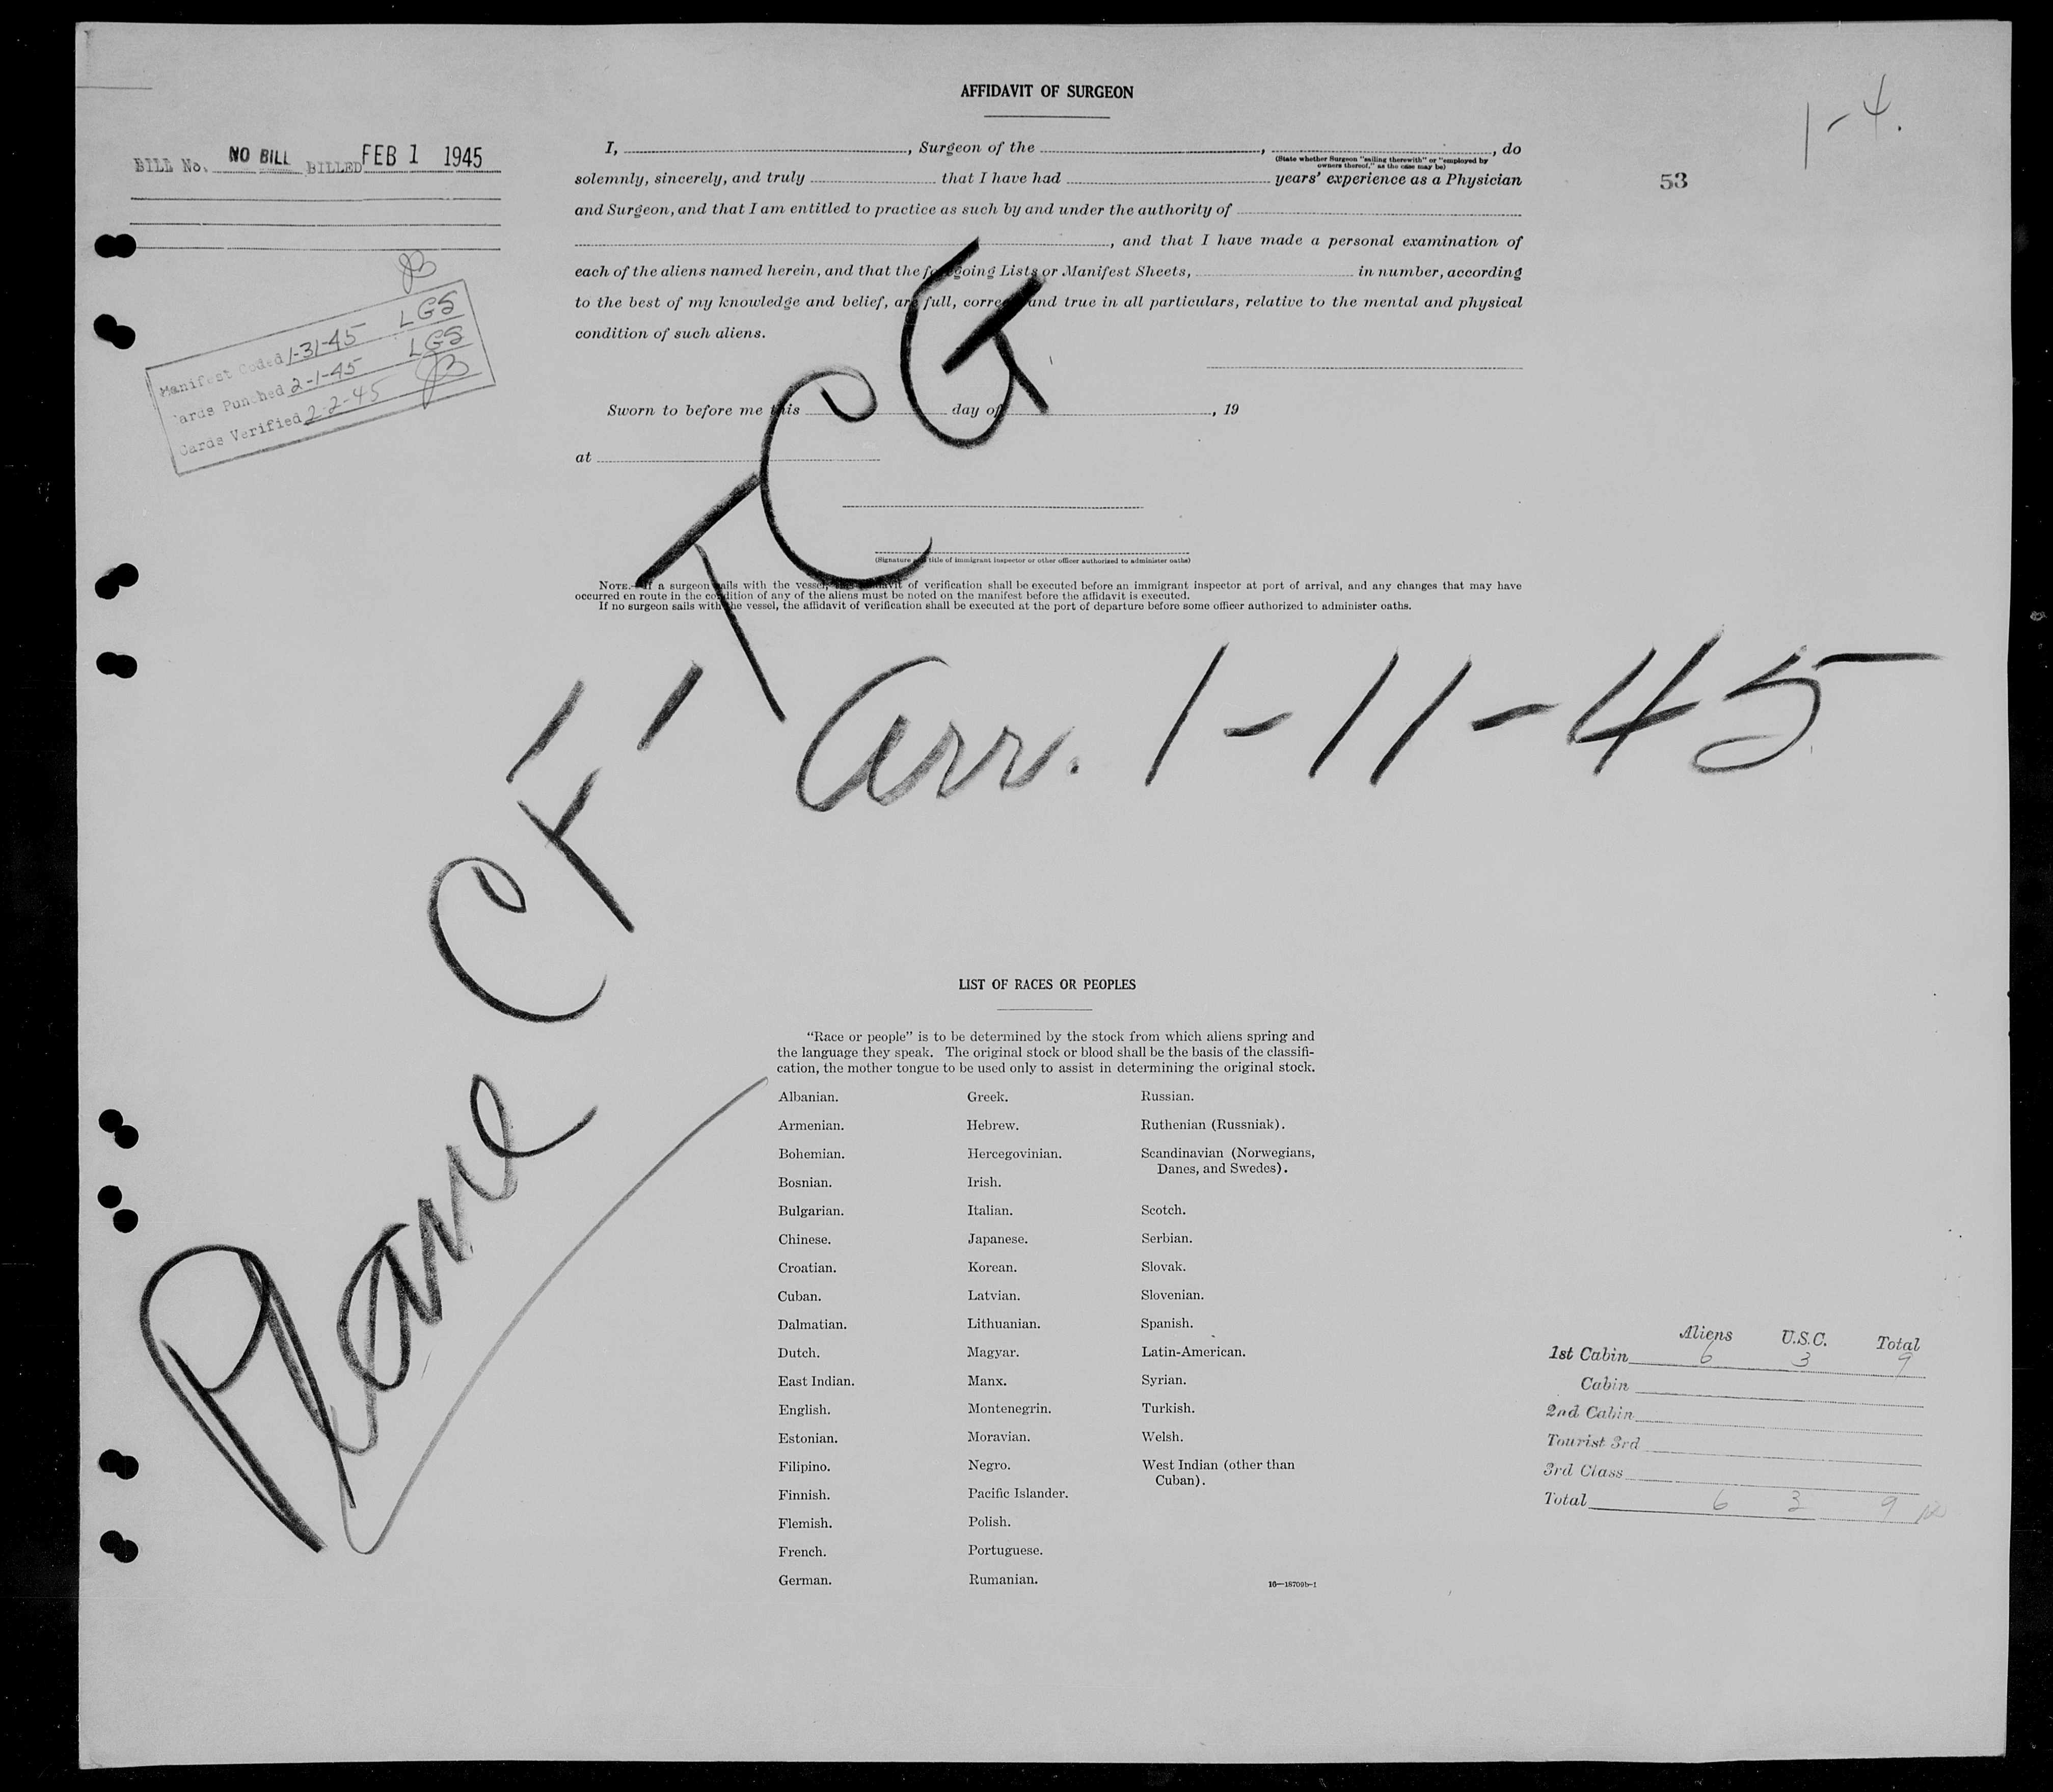 AFFIDAVIT OF SURGEON
1-4.
53
BILL No. NO BILL BILLED FEB 1 1945
I, , Surgeon of the , , do
(State whether Surgeon "sailing therewith" or "employed by
owners thereof," as the case may be)
solemnly, sincerely, and truly that I have had years' experience as a Physician
and Surgeon, and that I am entitled to practice as such by and under the authority of
, and that I have made a personal examination of
each of the aliens named herein, and that the foregoing Lists or Manifest Sheets, in number, according
to the best of my knowledge and belief, are full, correct, and true in all particulars, relative to the mental and physical
condition of such aliens.
Manifest Coded 1-31-45 LGS
Cards Punched 2-1-45 LGS
Cards Verified 2-2-45
Sworn to before me this day of , 19
at
(Signature and title of immigrant inspector or other officer authorized to administer oaths)
NOTE.—If a surgeon sails with the vessel, this affidavit of verification shall be executed before an immigrant inspector at port of arrival, and any changes that may have
occurred en route in the condition of any of the aliens must be noted on the manifest before the affidavit is executed.
If no surgeon sails with the vessel, the affidavit of verification shall be executed at the port of departure before some officer authorized to administer oaths.
Plane CF-TCG
Arr. 1-11-45
LIST OF RACES OR PEOPLES
"Race or people" is to be determined by the stock from which aliens spring and
the language they speak. The original stock or blood shall be the basis of the classifi-
cation, the mother tongue to be used only to assist in determining the original stock.
Albanian.
Armenian.
Bohemian.
Bosnian.
Bulgarian.
Chinese.
Croatian.
Cuban.
Dalmatian.
Dutch.
East Indian.
English.
Estonian.
Filipino.
Finnish.
Flemish.
French.
German.
Greek.
Hebrew.
Hercegovinian.
Irish.
Italian.
Japanese.
Korean.
Latvian.
Lithuanian.
Magyar.
Manx.
Montenegrin.
Moravian.
Negro.
Pacific Islander.
Polish.
Portuguese.
Rumanian.
Russian.
Ruthenian (Russniak).
Scandinavian (Norwegians,
Danes, and Swedes).
Scotch.
Serbian.
Slovak.
Slovenian.
Spanish.
Latin-American.
Syrian.
Turkish.
Welsh.
West Indian (other than
Cuban).
16—18709b-1
Aliens U.S.C. Total
1st Cabin 6 3 9
Cabin
2nd Cabin
Tourist 3rd
3rd Class
Total 6 3 9